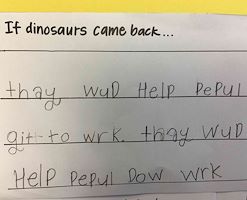 If dinosaurs came back...
thay WUD Help PePul
git to wrk. thay WUD
Help PePul Dow wrk